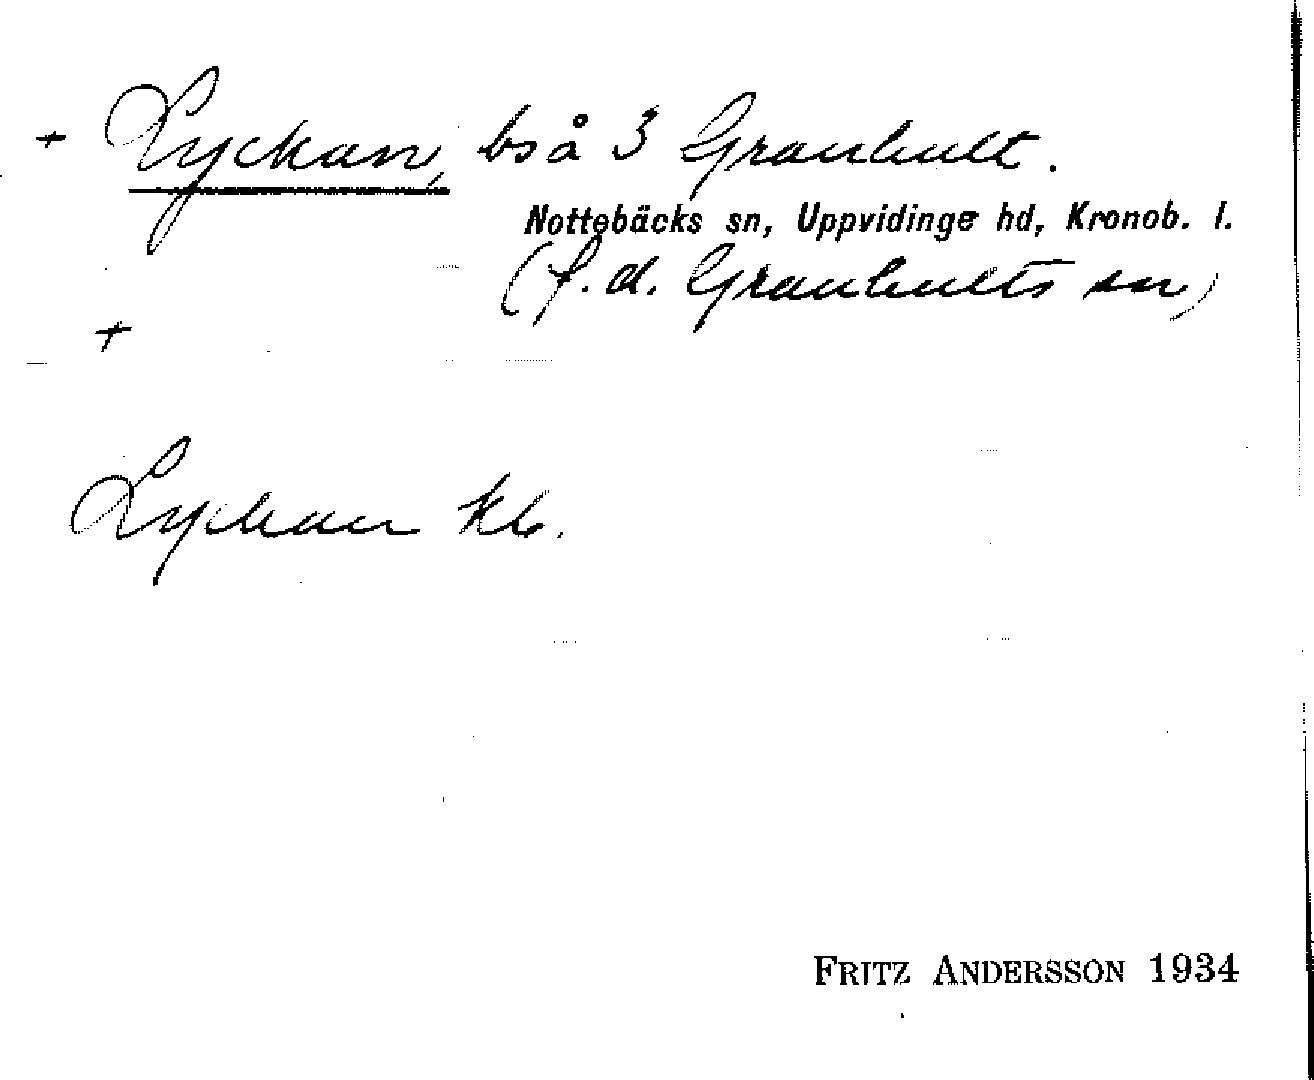 + Lyckan, bså 3 Granhult.
Nottebäcks sn, Uppvidinge hd, Kronob. l.
(f.d. Granhults sn)
+
Lyckan kb.
FRITZ ANDERSSON 1934